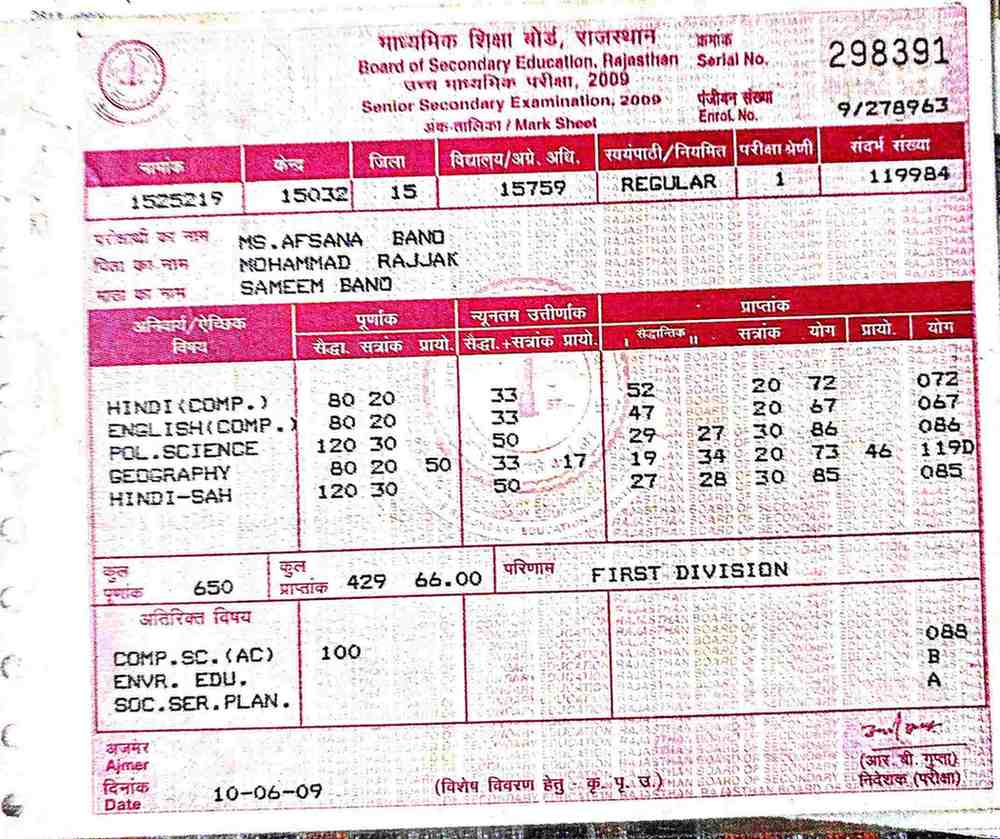 माध्यमिक शिक्षा बोर्ड, राजस्थान
Board of Secondary Education, Rajasthan
उच्च माध्यमिक परीक्षा, 2009
Senior Secondary Examination, 2009
अंक-तालिका / Mark Sheet
क्रमांक
Serial No. 298391
पंजीयन संख्या
Enrol. No. 9/278963
नामांक केन्द्र जिला विद्यालय/अग्रे. अधि. स्वयंपाठी/नियमित परीक्षा श्रेणी संदर्भ संख्या
1525219 15032 15 15759 REGULAR 1 119984
परीक्षार्थी का नाम MS.AFSANA BANO
पिता का नाम MOHAMMAD RAJJAK
माता का नाम SAMEEM BANO
अनिवार्य/ऐच्छिक विषय पूर्णांक न्यूनतम उत्तीर्णांक प्राप्तांक
सैद्धा. सत्रांक प्रायो. सैद्धा.+सत्रांक प्रायो. I सैद्धान्तिक II सत्रांक योग प्रायो. योग
HINDI(COMP.) 80 20 33 52 20 72 072
ENGLISH(COMP.) 80 20 33 47 20 67 067
POL.SCIENCE 120 30 50 29 27 30 86 086
GEOGRAPHY 80 20 50 33 17 19 34 20 73 46 119D
HINDI-SAH 120 30 50 27 28 30 85 085
कुल पूर्णांक 650 कुल प्राप्तांक 429 66.00 परिणाम FIRST DIVISION
अतिरिक्त विषय
COMP.SC.(AC) 100 088
ENVR. EDU. B
SOC.SER.PLAN. A
अजमेर
Ajmer
दिनांक
Date 10-06-09
(विशेष विवरण हेतु - कृ. पृ. उ.)
(आर. बी. गुप्ता)
निदेशक (परीक्षा)